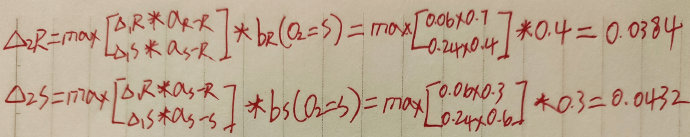 Δ₂R=max[Δ₁R*a_R-R Δ₁S*a_S-R]*b_R(O₂=S)=max[0.06×0.7 0.24×0.4]*0.4=0.0384
Δ₂S=max[Δ₁R*a_S-R Δ₁S*a_S-S]*b_S(O₂=S)=max[0.06×0.3 0.24×0.6]*0.3=0.0432